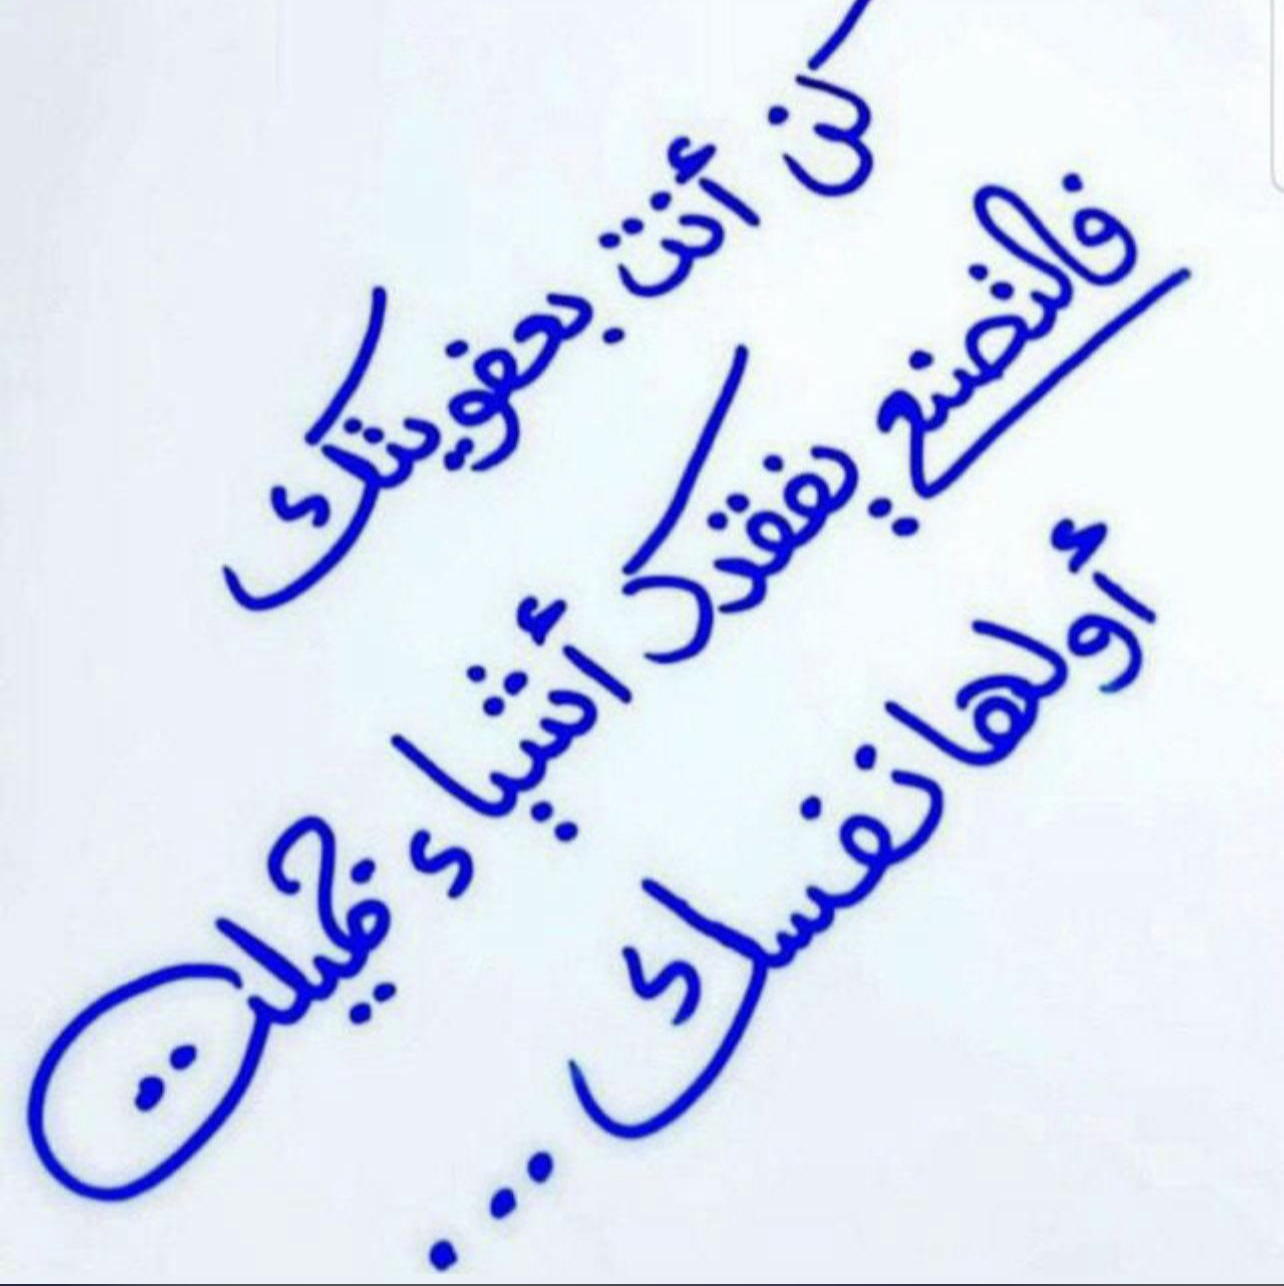 كن أنت بعفويتك
فالتصنع يفقدك أشياء جميلة
أولها نفسك...